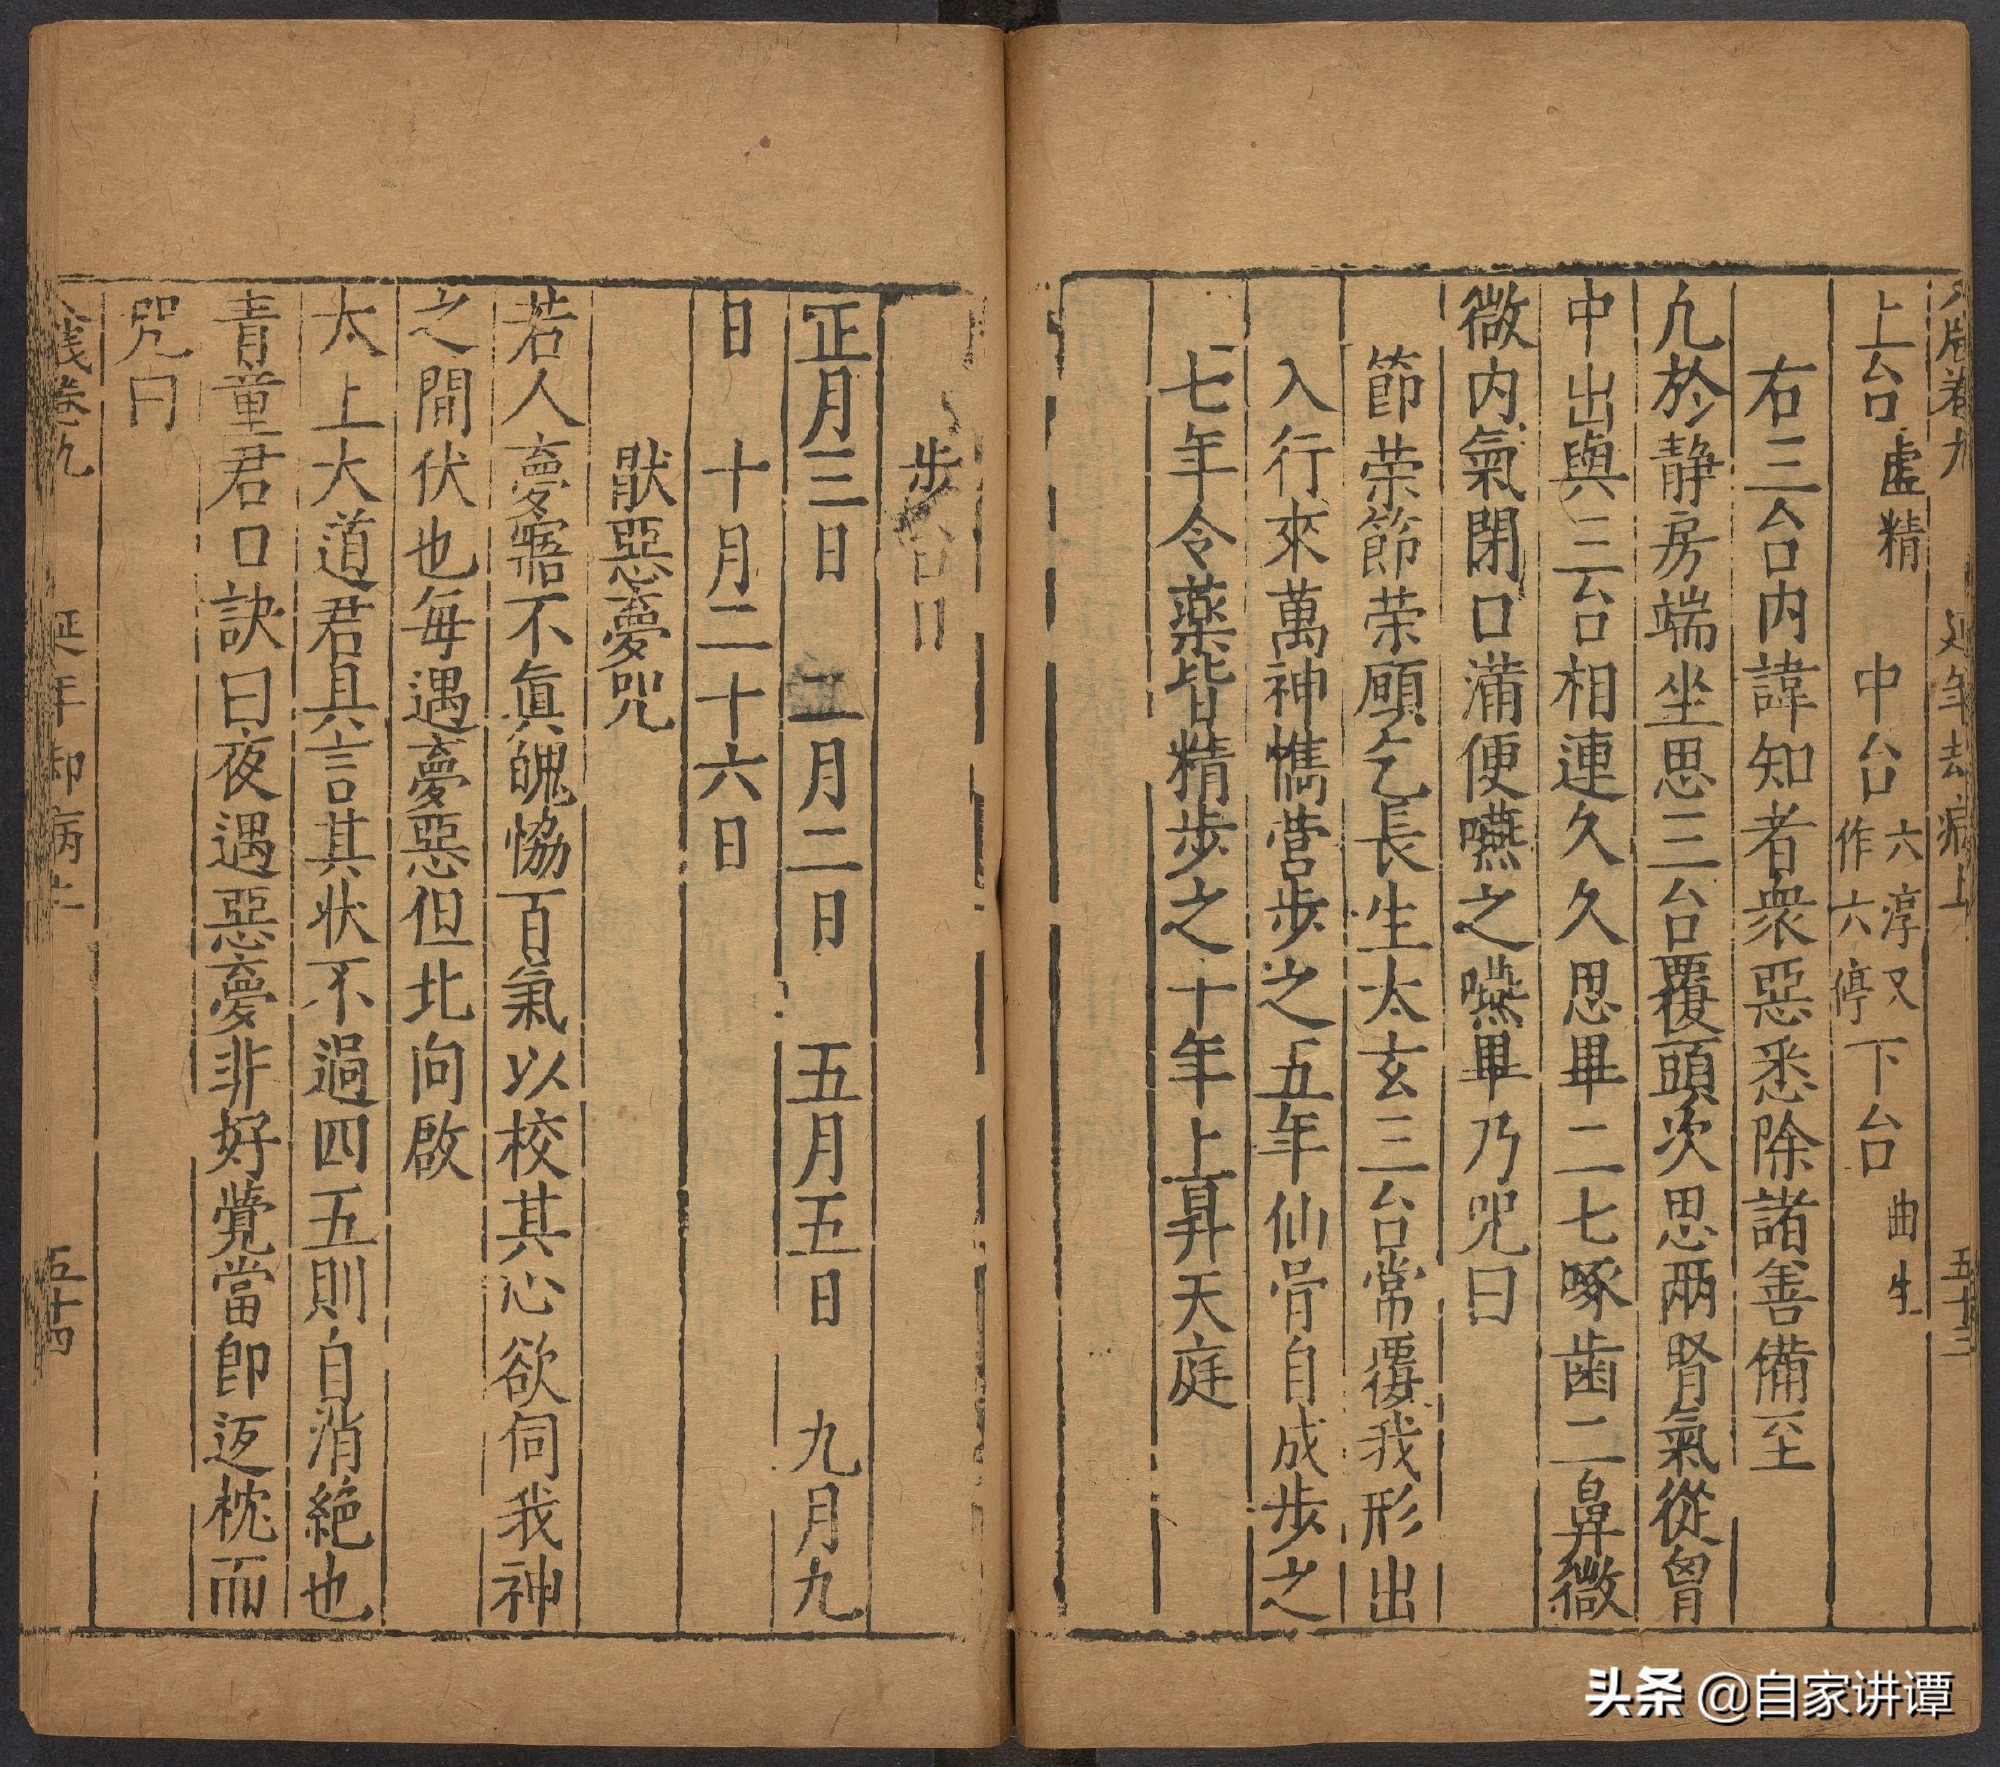 卷九 延年去病上 五十三
上台虛精 中台六淳又作六停 下台曲生
右三台内諱知者衆惡悉除諸善備至
凢於静房端坐思三台覆頭次思兩腎氣從胷
中出與三台相連久久思畢二七啄齒二鼻微
微内氣閉口滿便嚥之嚥畢乃咒曰
節荣節荣願乞長生太玄三台常覆我形出
入行來萬神攜营步之五年仙骨自成步之
七年令薬皆精步之十年上昇天庭
步台日
正月三日 二月二日 五月五日 九月九
日 十月二十六日
猒惡夢咒
若人夢寤不眞魄恊百氣以校其心欲伺我神
之間伏也每遇夢惡但北向啟
太上大道君具言其状不過四五則自消絶也
青童君口訣曰夜遇惡夢非好覺當即返枕而
咒曰
卷九 延年却病上 五十四
头条 @自家讲谭